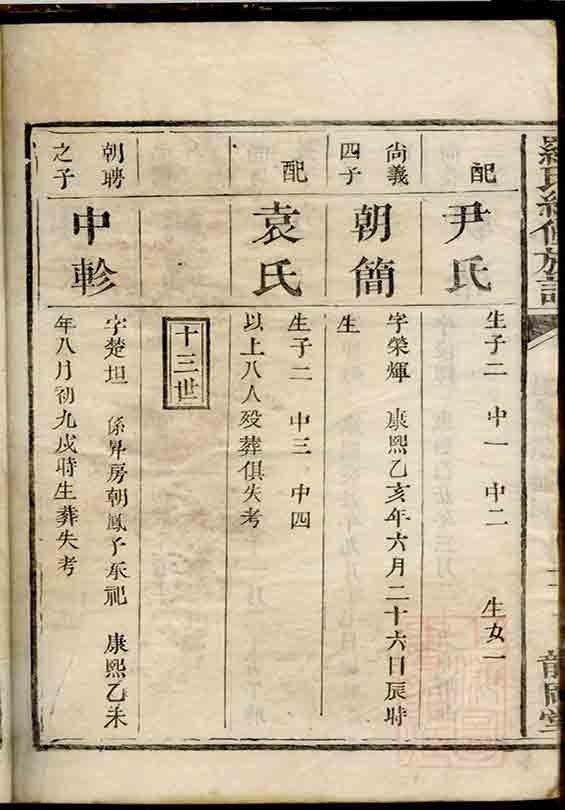 羅氏續修族譜
配
尹氏
生子二 中一 中二 生女一
尚義
四子
朝簡
字榮輝 康熙乙亥年六月二十六日辰時
生
配
袁氏
生子二 中三 中四
以上八人歿葬俱失考
十三世
朝聘
之子
中軫
字楚坦 係昇房朝鳳子承祀 康熙乙未
年八月初九戌時生葬失考